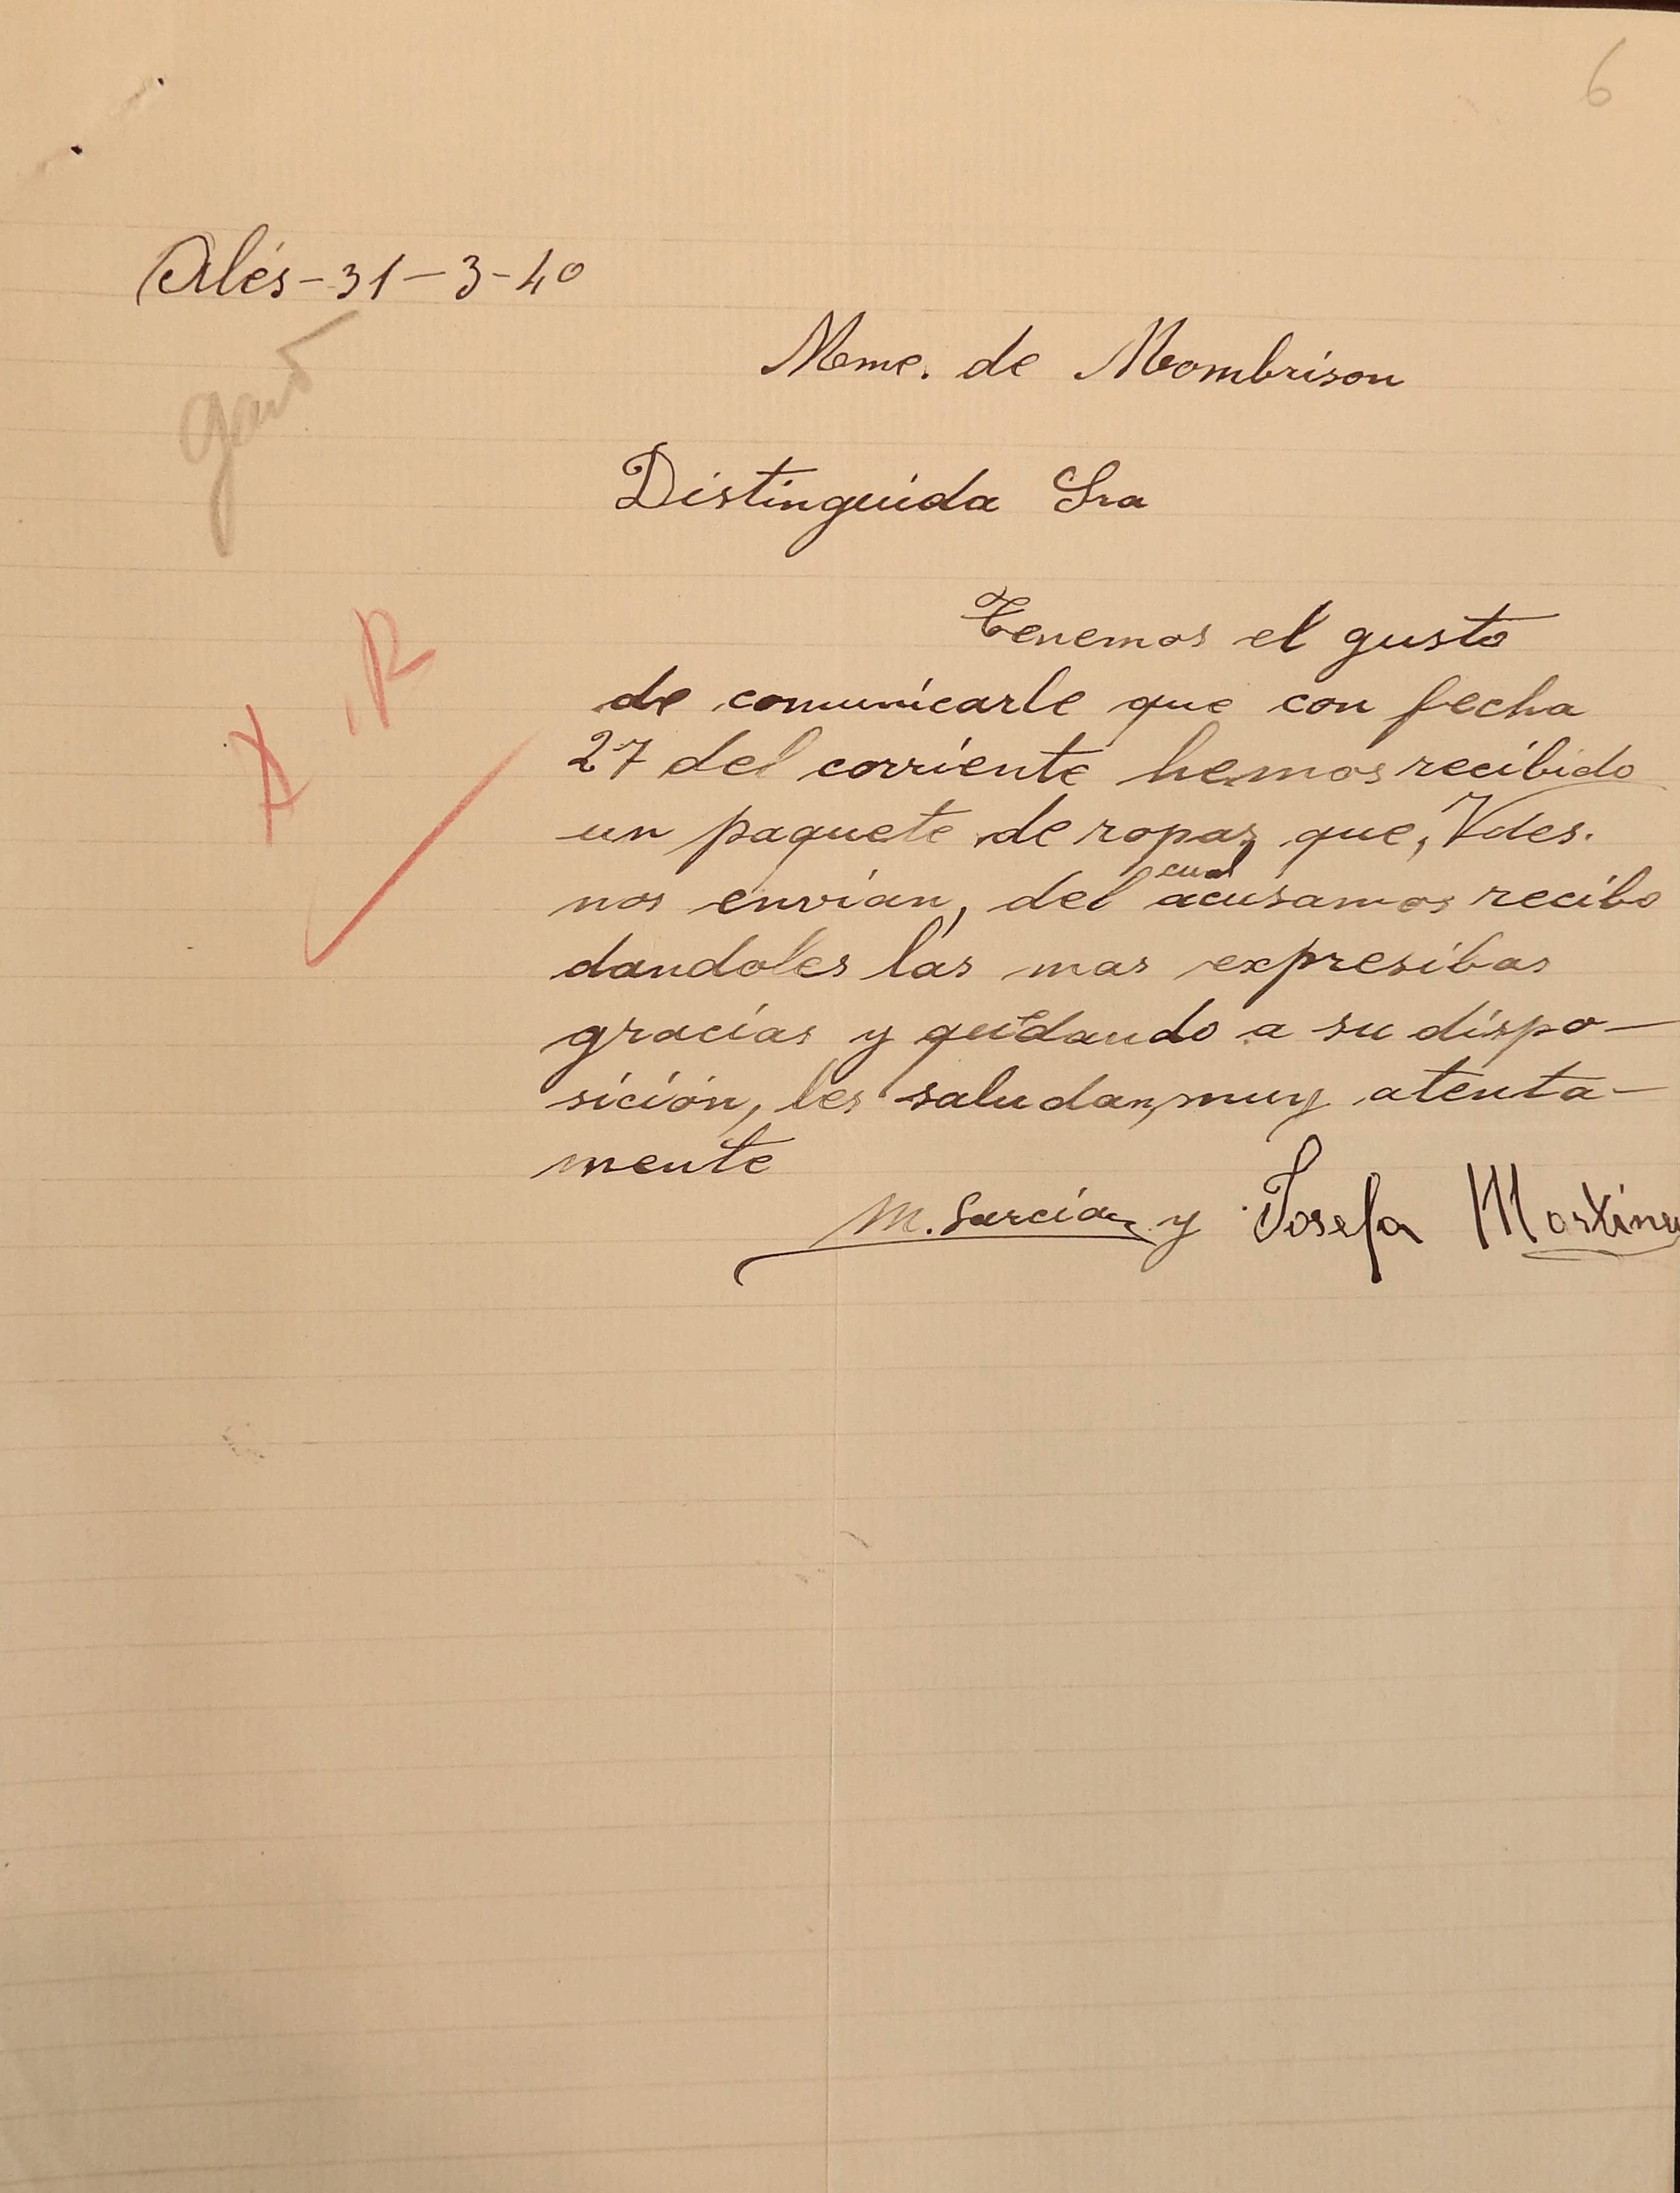 6
Alés-31-3-40
Mme. de Mombrison
Distinguida Sra
Tenemos el gusto
R
de comunicarle que con fecha
27 del corriente hemos recibido
un paquete de ropas que, Vdes.
nos envian, del cual acusamos recibo
dandoles las mas expresibas
gracias y quedando a su dispo-
sición, les saludan, muy atenta-
mente
M. Garcia y Josefa Martinez